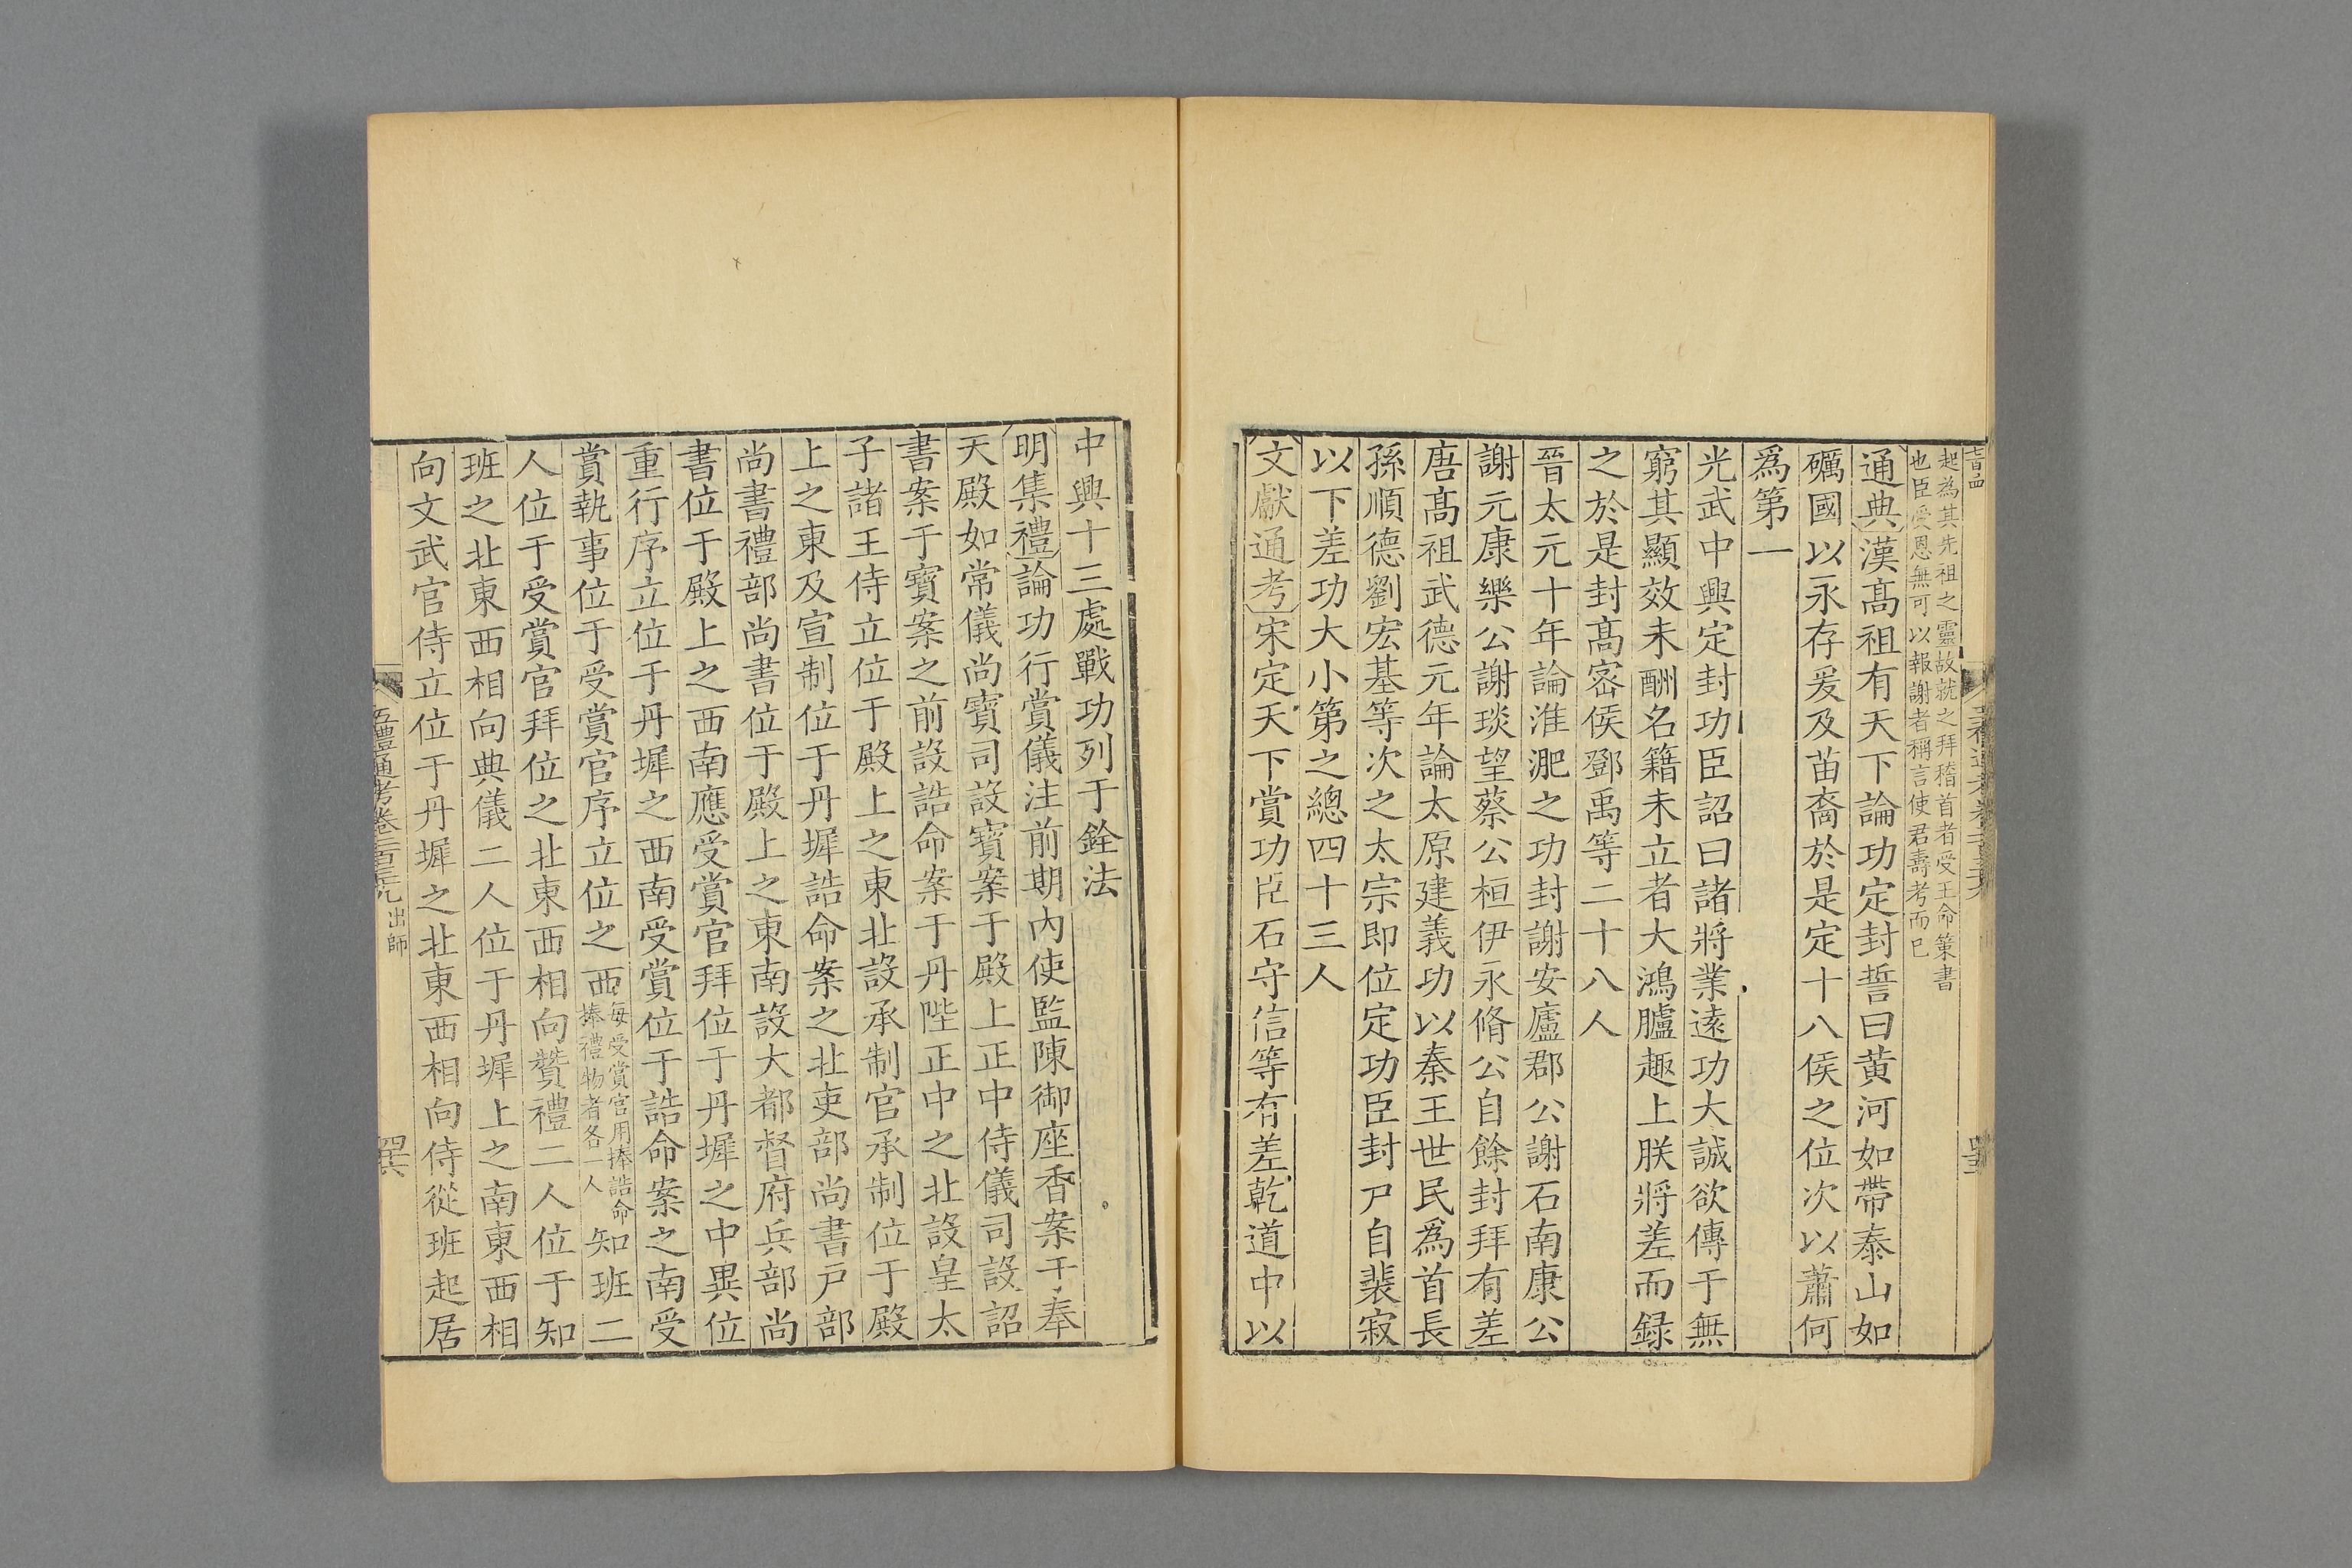 起為其先祖之靈故就之拜稽首者受王命策書
也臣受恩無可以報謝者稱言使君壽考而已
通典漢髙祖有天下論功定封誓曰黄河如帶泰山如
礪國以永存爰及苗裔於是定十八侯之位次以蕭何
爲第一
光武中興定封功臣詔曰諸將業遠功大誠欲傳于無
窮其顯效未酬名籍未立者大鴻臚趣上朕將差而録
之於是封髙宻侯鄧禹等二十八人
晉太元十年論淮淝之功封謝安廬郡公謝石南康公
謝元康樂公謝琰望蔡公桓伊永脩公自餘封拜有差
唐髙祖武德元年論太原建義功以秦王世民爲首長
孫順德劉宏基等次之太宗即位定功臣封戸自裴寂
以下差功大小第之總四十三人
文獻通考宋定天下賞功臣石守信等有差乾道中以
中興十三處戰功列于銓法
明集禮論功行賞儀注前期内使監陳御座香案于奉
天殿如常儀尚寳司設寳案于殿上正中侍儀司設詔
書案于寳案之前設誥命案于丹陛正中之北設皇太
子諸王侍立位于殿上之東北設承制官承制位于殿
上之東及宣制位于丹墀誥命案之北吏部尚書戸部
尚書禮部尚書位于殿上之東南設大都督府兵部尚
書位于殿上之西南應受賞官拜位于丹墀之中異位
重行序立位于丹墀之西南受賞位于誥命案之南受
賞執事位于受賞官序立位之西每受賞官用捧誥命捧禮物者各一人知班二
人位于受賞官拜位之北東西相向贊禮二人位于知
班之北東西相向典儀二人位于丹墀上之南東西相
向文武官侍立位于丹墀之北東西相向侍從班起居
五禮通考卷二百三十九 出師